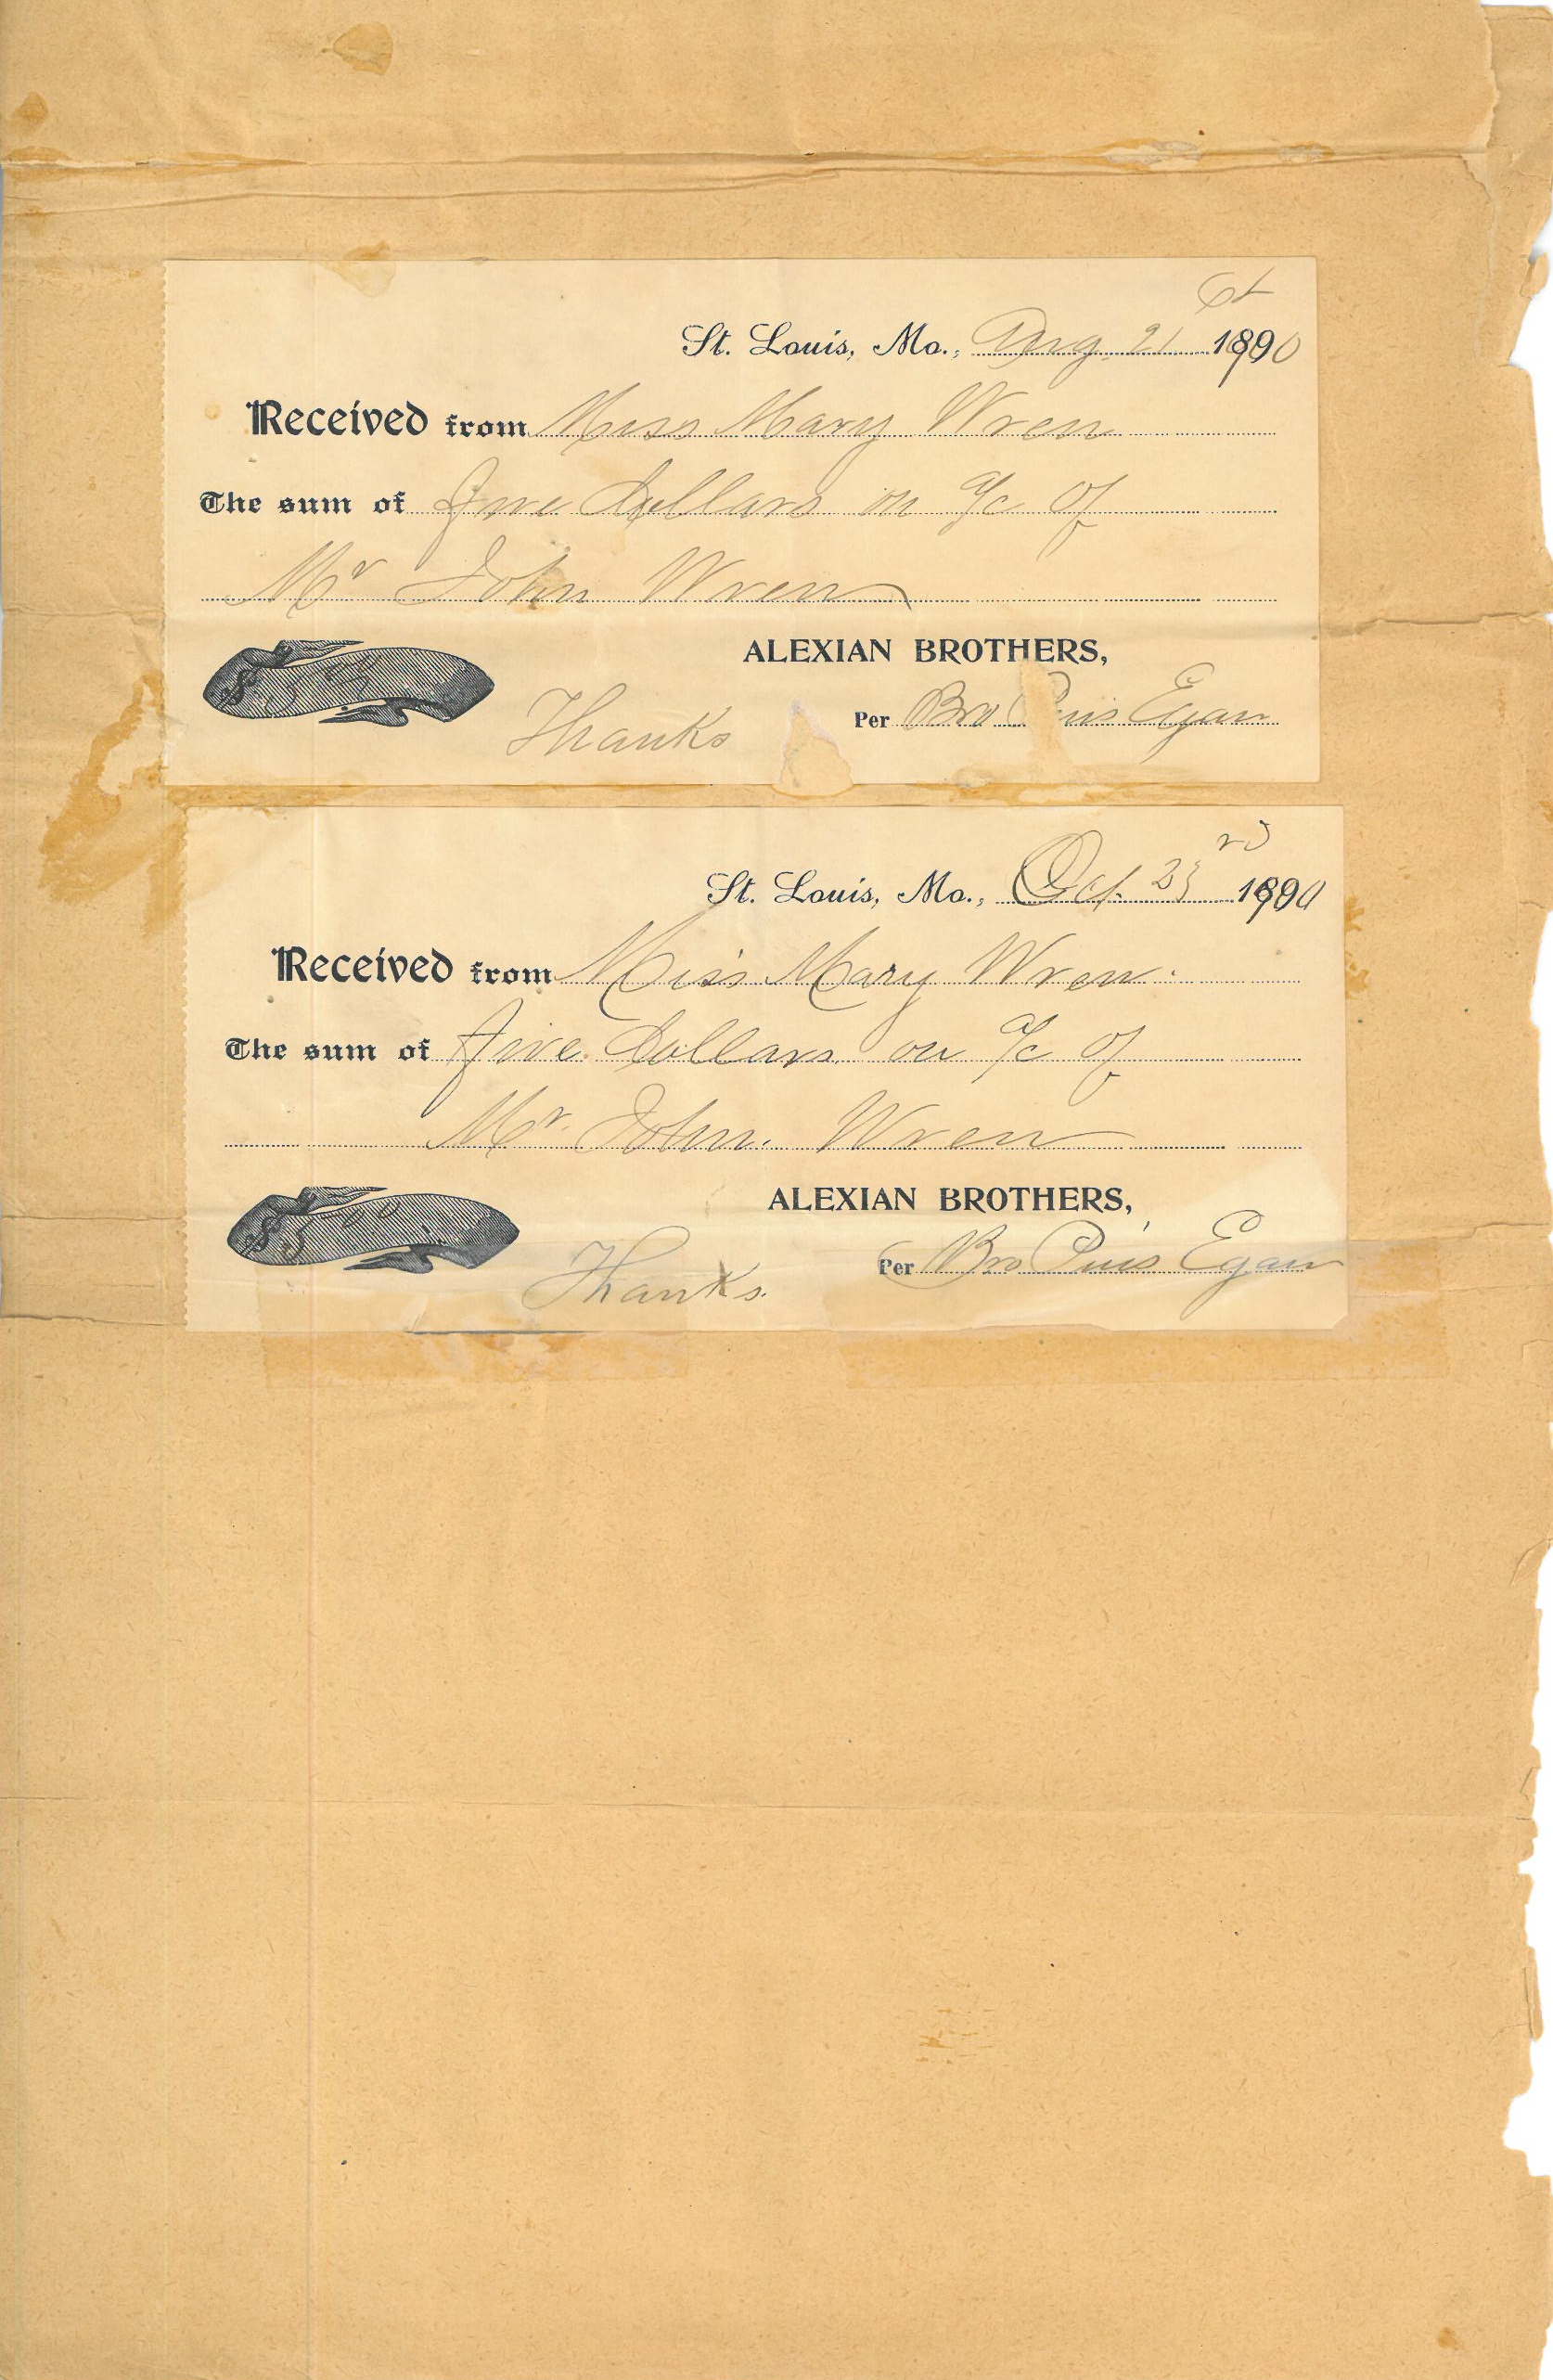 st
St. Louis, Mo., Aug. 21 1900
Received from Miss Mary Wren
The sum of five Dollars on a/c of
Mr John Wren
ALEXIAN BROTHERS,
$ 5
Thanks Per Bro Pius Egan
rd
St. Louis, Mo., Oct. 23 1900
Received from Miss Mary Wren.
The sum of five Dollars on a/c of
Mr. John. Wren
ALEXIAN BROTHERS,
$ 5 00
Thanks. Per Bro Pius Egan